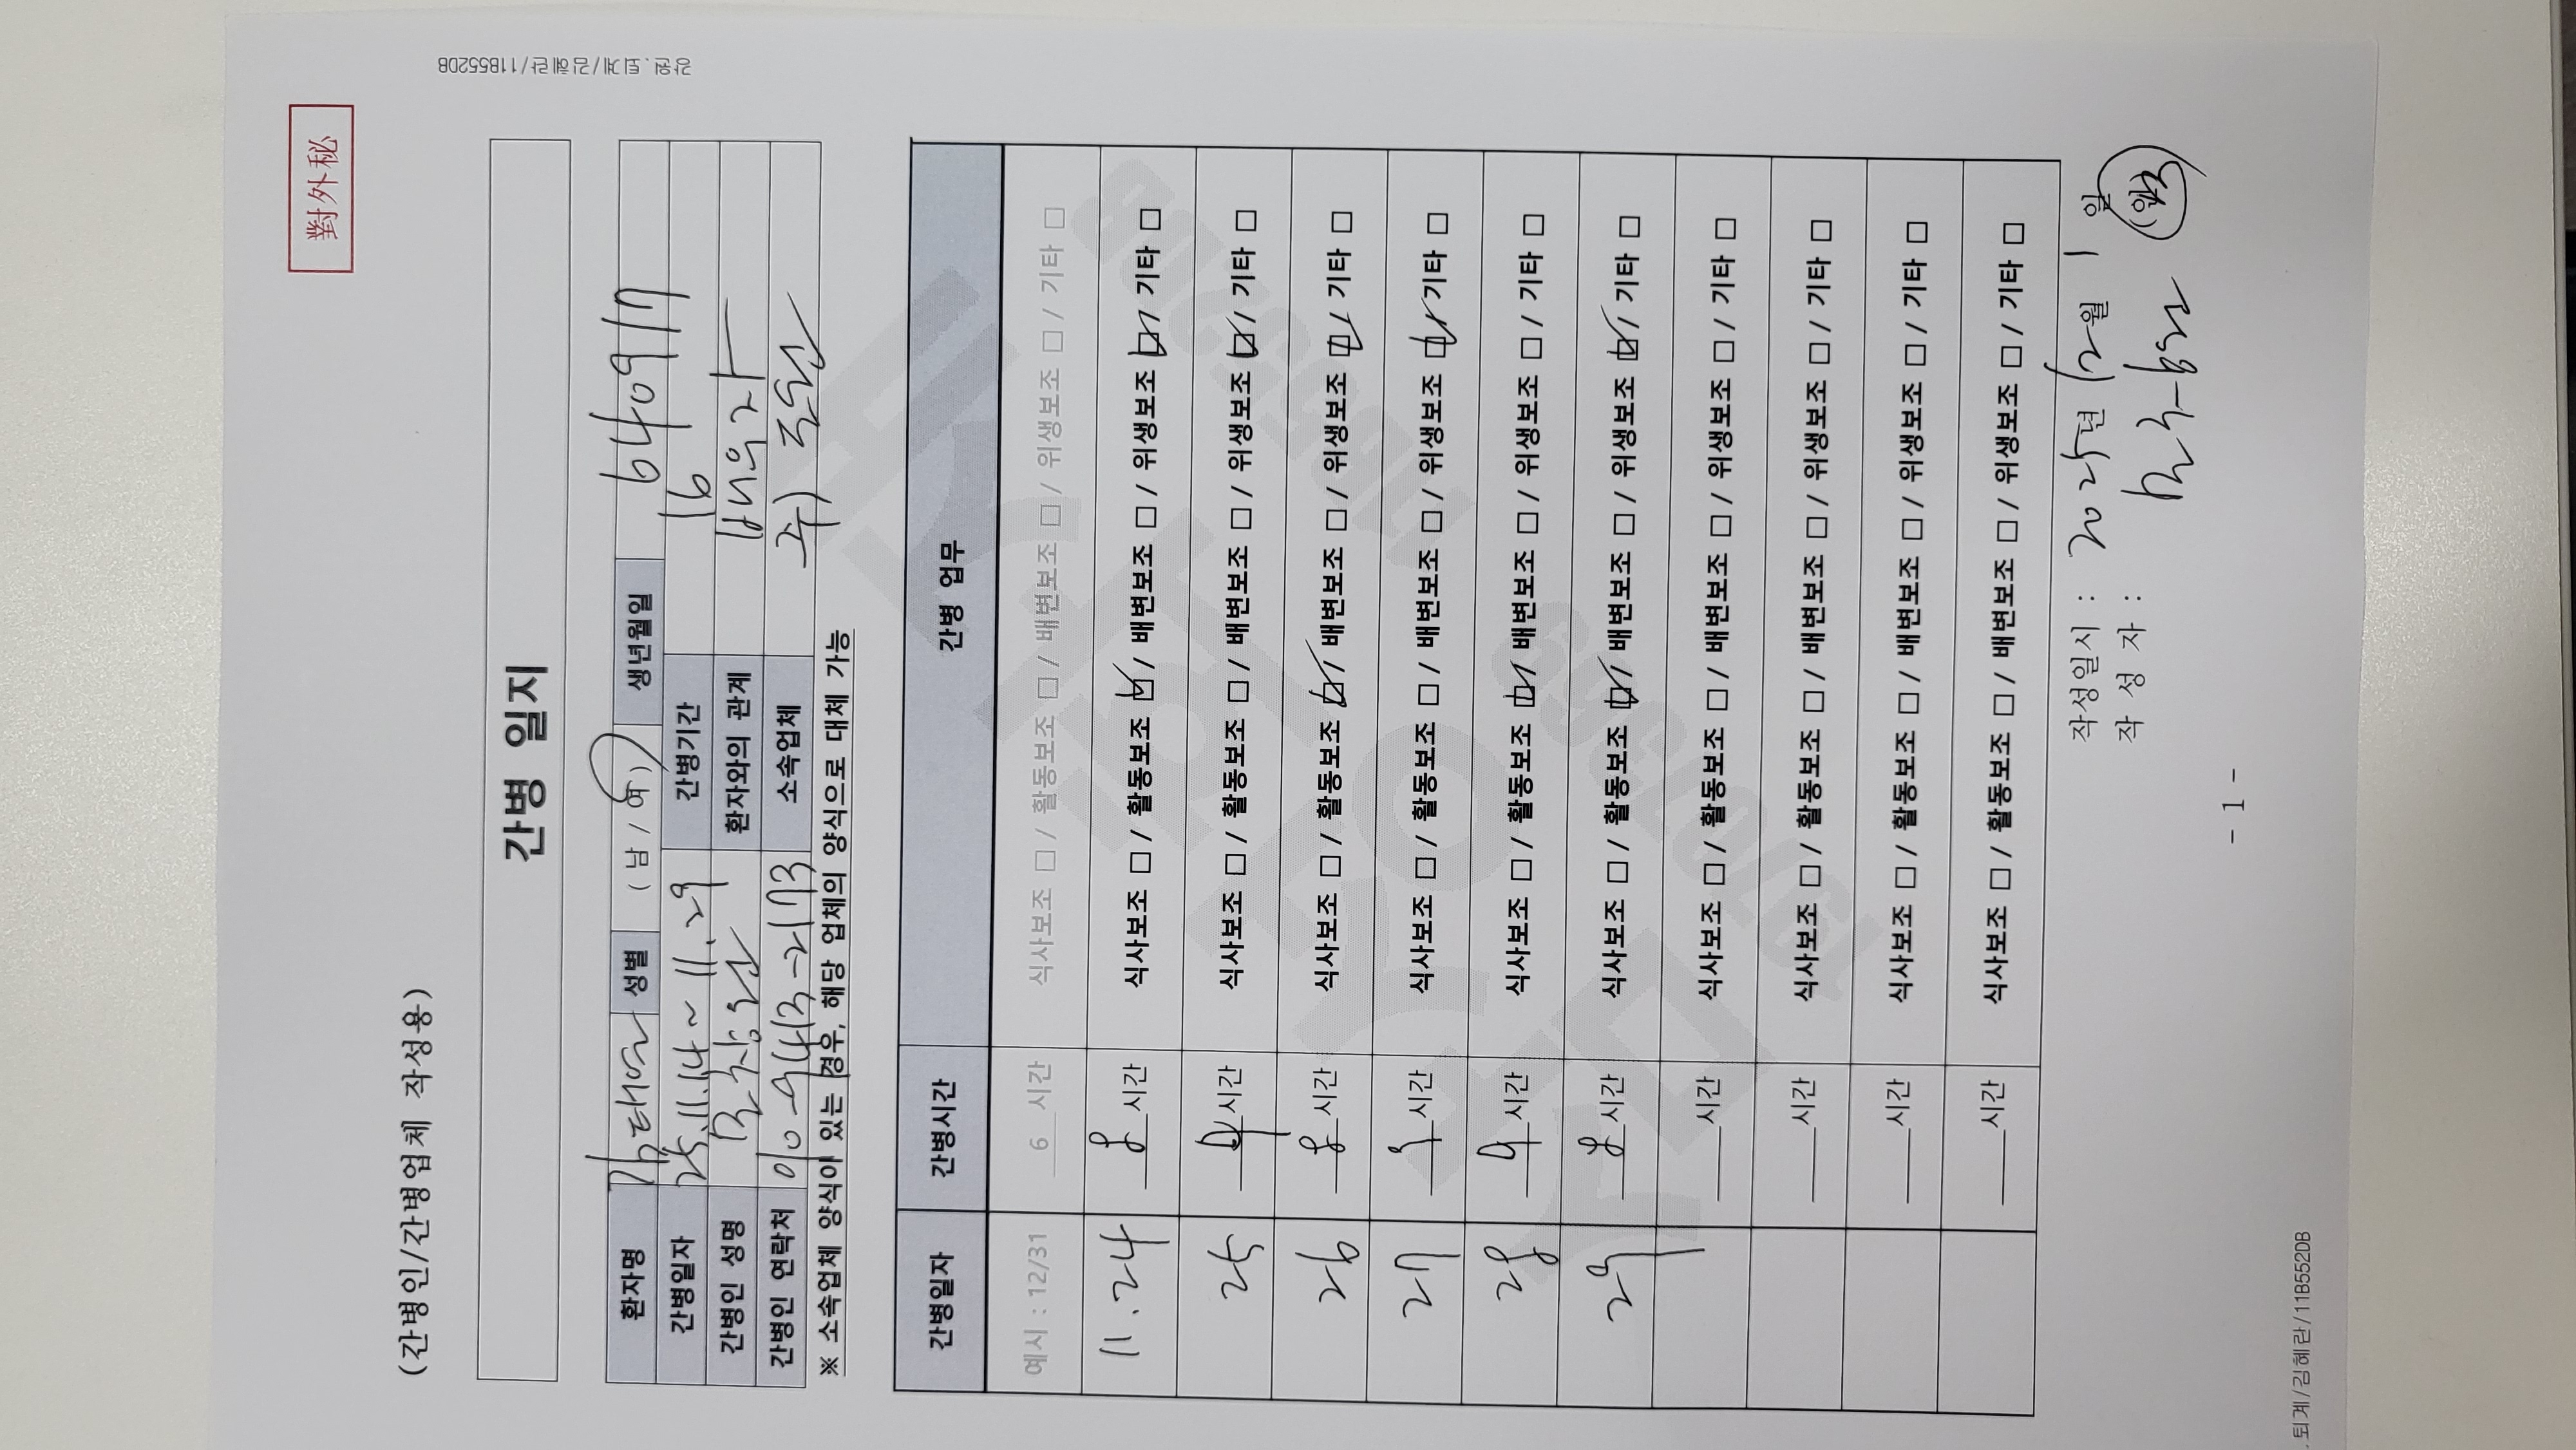 강원.퇴계/김혜란/11B552DB
對外秘
(간병인/간병업체 작성용)
간병 일지
환자명 성별 (남 / 여) 생년월일 640917
간병일자 25.11.14 ~ 11.29 간병기간 16
간병인 성명 환자와의 관계 배우자
간병인 연락처 010-9413-2173 소속업체
※ 소속업체 양식이 있는 경우, 해당 업체의 양식으로 대체 가능
간병일자 간병시간 간병 업무
예시 : 12/31 6 시간 식사보조 □ / 활동보조 □ / 배변보조 □ / 위생보조 □ / 기타 □
11.24 8 시간 식사보조 □ / 활동보조 ☑ / 배변보조 □ / 위생보조 ☑ / 기타 □
25 시간 식사보조 □ / 활동보조 □ / 배변보조 □ / 위생보조 ☑ / 기타 □
26 8 시간 식사보조 □ / 활동보조 ☑ / 배변보조 □ / 위생보조 ☑ / 기타 □
27 시간 식사보조 □ / 활동보조 □ / 배변보조 □ / 위생보조 ☑ / 기타 □
28 시간 식사보조 □ / 활동보조 ☑ / 배변보조 □ / 위생보조 □ / 기타 □
29 8 시간 식사보조 □ / 활동보조 ☑ / 배변보조 □ / 위생보조 ☑ / 기타 □
시간 식사보조 □ / 활동보조 □ / 배변보조 □ / 위생보조 □ / 기타 □
시간 식사보조 □ / 활동보조 □ / 배변보조 □ / 위생보조 □ / 기타 □
시간 식사보조 □ / 활동보조 □ / 배변보조 □ / 위생보조 □ / 기타 □
시간 식사보조 □ / 활동보조 □ / 배변보조 □ / 위생보조 □ / 기타 □
작성일시 : 2025년 12월 1일
작 성 자 : (인)
- 1 -
.퇴계/김혜란/11B552DB